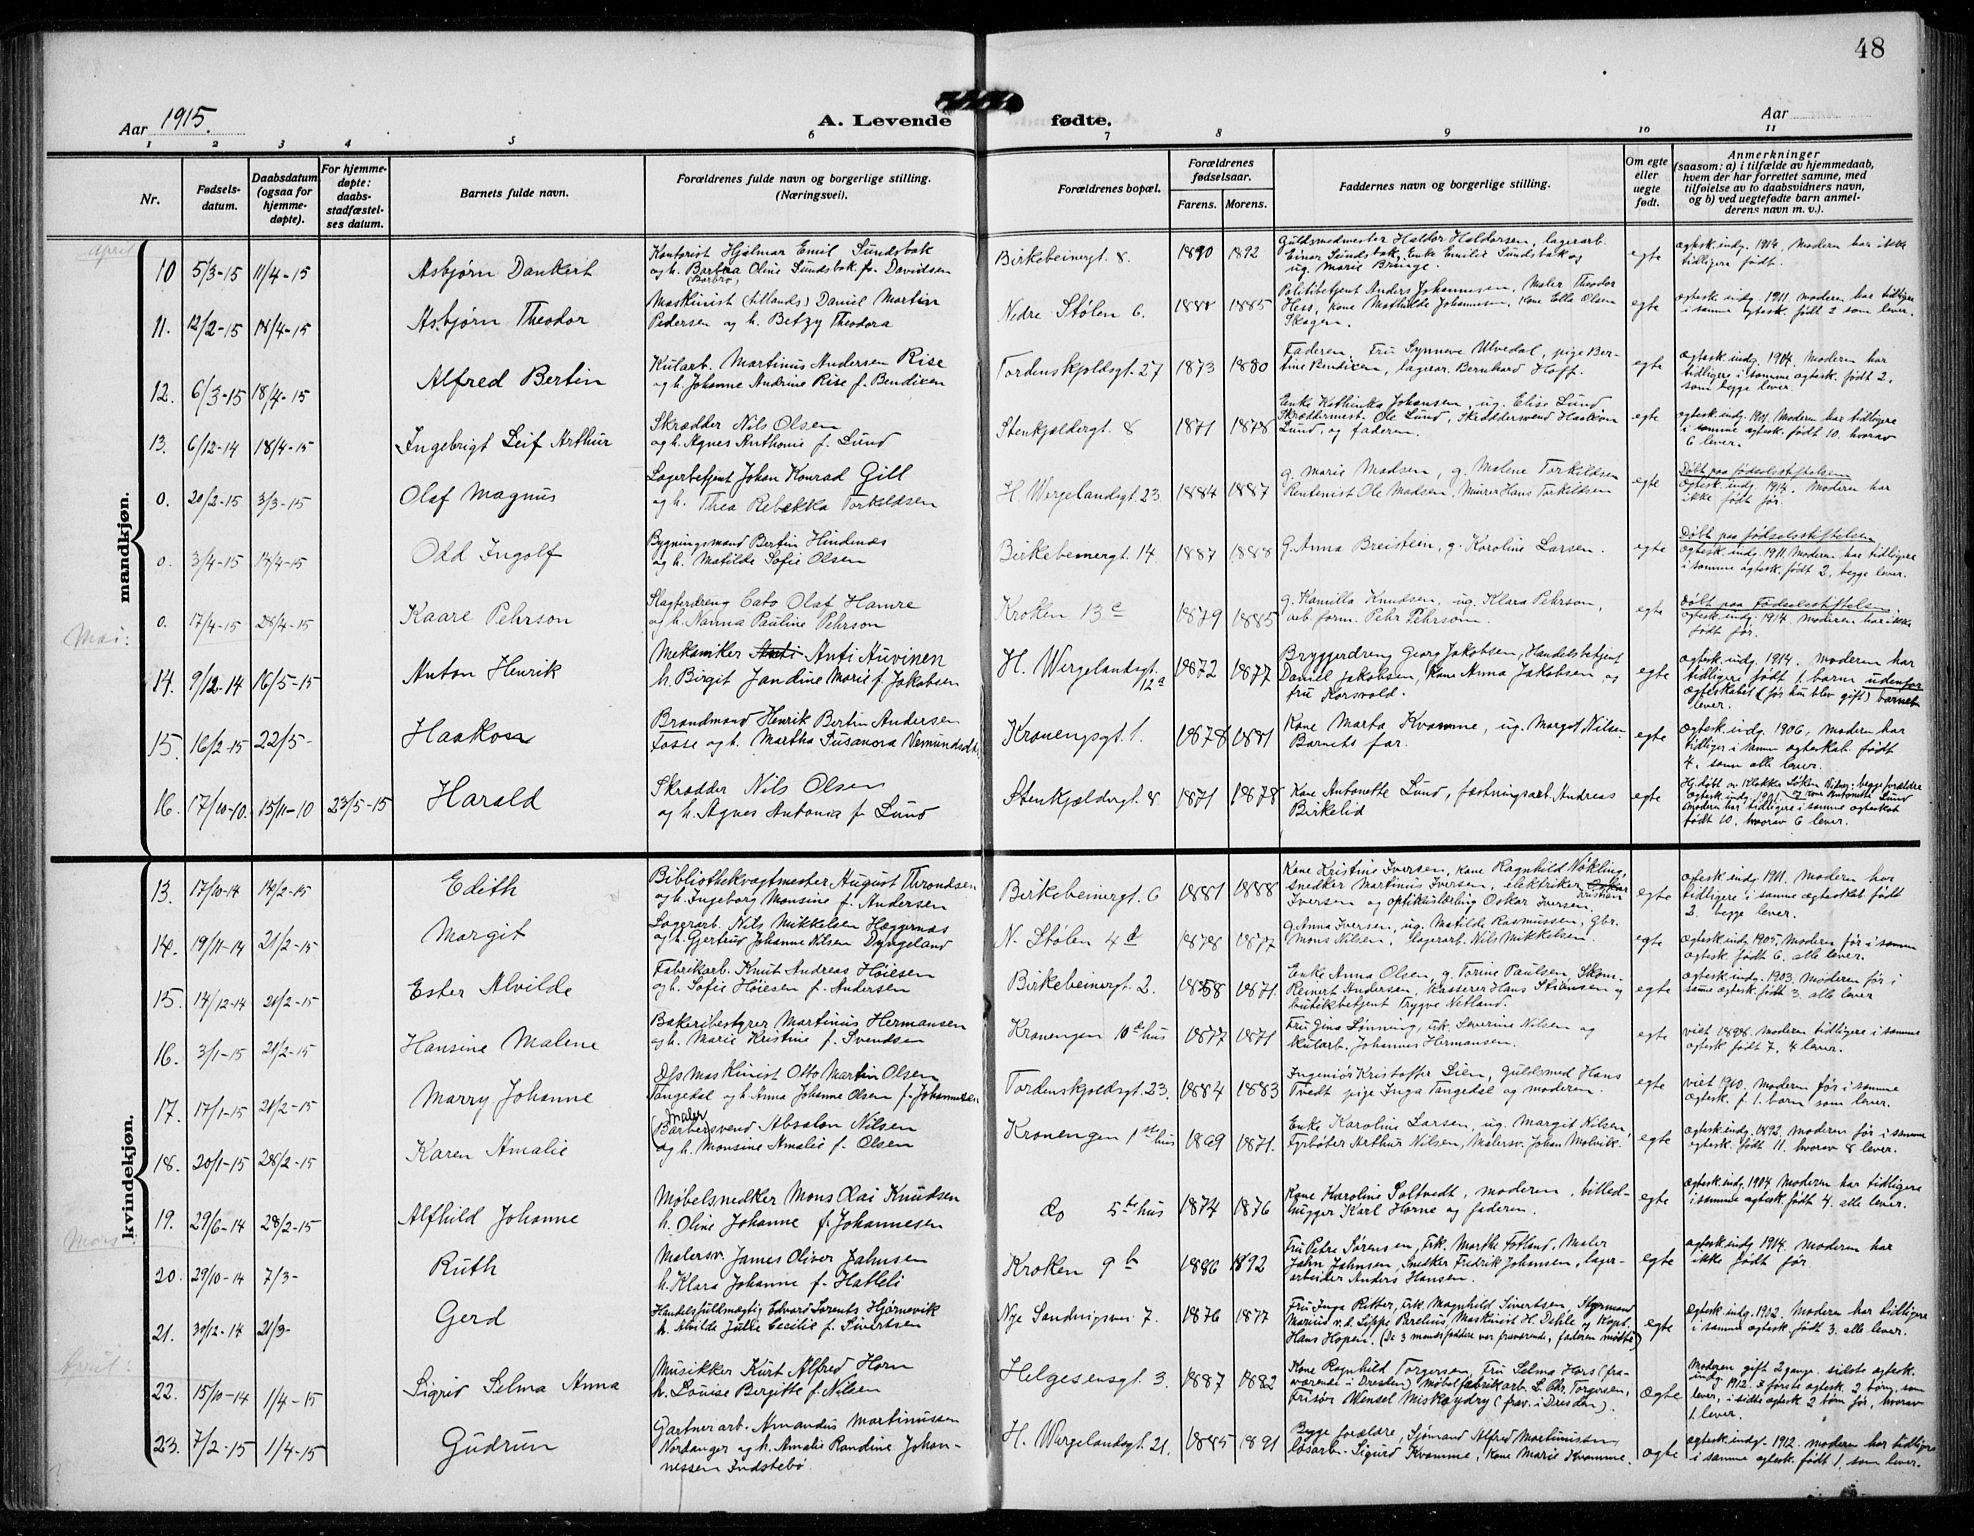 48
Aar 1915.
A. Levende fødte.
Aar
1 2 3 4 5 6 7 8 9 10 11
Nr.
Fødsels-
datum.
Daabsdatum
(ogsaa for
hjemme-
døpte).
For hjemme-
døpte:
daabs-
stadfæstel-
ses datum.
Barnets fulde navn.
Forældrenes fulde navn og borgerlige stilling.
(Næringsvei).
Forældrenes bopæl.
Forældrenes
fødselsaar.
Farens. Morens.
Faddernes navn og borgerlige stilling.
Om egte
eller
uegte
født.
Anmerkninger
(saasom: a) i tilfælde av hjemmedaab,
hvem der har forrettet samme, med
tilføielse av to daabsvidners navn,
og b) ved uegtefødte barn anmel-
derens navn m. v.).
april
mandkjøn.
10 5/3-15 11/4-15 Asbjørn Dankert
Kontorist Hjalmar Emil Sundsbak
og h. Barbra Oline Sundsbak f. Davidsen
(Barbro)
Birkebeinergt. 8. 1890 1892
Guldsmedmester Haldor Haldorsen, lagerarb.
Einar Sundsbak, Enke Emilie Sundsbak og
ug. Marie Bringe.
egte
egtesk. indg. 1914. Moderen har ikke
tidligere født.
11. 12/2-15 18/4-15 Asbjørn Theodor
Maskinist (tillands) Daniel Martin
Pedersen og h. Betzy Theodora
Nedre Stølen 6. 1888 1885
Politibetjent Anders Johannesen, Maler Theodor
Hess, Kone Mathilde Johannesen, Kone Elle Olsen
Skagen.
egte
egtesk. indg. 1911. moderen har tidligere
i samme egtesk. født 2 som lever.
12. 6/3-15 18/4-15 Alfred Bertin
Kularb. Martinus Andersen Rise
og h. Johanne Andrine Rise f. Bendixen
Tordenskjoldsgt. 27 1873 1880
Faderen, Fru Synneve Ulvedal, pige Ber-
tine Bendixen, lagerar. Bernhard Hoff.
egte
egtesk. indg. 1904. Moderen har
tidligere i samme egtesk. født 2,
som begge lever.
13. 6/12-14 18/4-15 Ingebrigt Leif Arthur
Skrædder Nils Olsen
og h. Agnes Anthonie f. Lund
Stenkjeldergt. 8 1871 1878
Enke Kathinka Johansen, ug. Elise Lund
Skræddermest. Ole Lund, Skræddersvend Haakon
Lund, og faderen.
egte
egtesk. indg. 1901. Moderen har tidligere
i samme egtesk. født 10. hvorav
6 lever.
0. 20/2-15 3/3-15 Olaf Magnus
Lagerbetjent Johan Konrad Gill
og h. Thea Rebekka Torkildsen
H. Wergelandsgt. 23 1884 1887
g. Marie Madsen, g. Malene Torkildsen
Rentenist Ole Madsen, Murer Hans Torkildsen
egte
Døbt paa fødselsstiftelsen
egtesk. indg. 1914. Moderen har
ikke født før.
0. 3/4-15 14/4-15 Odd Ingolf
Bygningsmand Bertin Hindenæs
og h. Matilde Sofie Olsen
Birkebeinergt. 14. 1887 1888
g. Anna Breistein, g. Karoline Larsen.
egte
Døbt paa fødselsstiftelsen,
egtesk. indg. 1911. Moderen har tidligere
i samme egtesk. født 2, begge lever.
Mai:
0. 17/4-15 28/4-15 Kaare Pehrson
Slagterdreng Cato Olaf Hamre
og h. Nanna Pauline Pehrson
Kroken 13 c 1879 1885
g. Kamilla Knudsen, ug. Klara Pehrson,
arb. form. Pehr Pehrson.
egte
Døbt paa Fødselsstiftelsen.
egtesk. indg. 1914. Moderen har ikke
født før.
14. 9/12-14 16/5-15 Anton Henrik
Mekaniker Anti Auvinen
h. Birgit Jandine Marie f. Jakobsen
H. Wergelandsgt. 12 a 1872 1877
Bryggerdreng Georg Jakobsen, Handelsbetjent
Daniel Jakobsen, Kone Anna Jakobsen og
fru Korsvold.
egte
egtesk. indg. 1914. Moderen har
tidligere født 1 barn udenfor
egteskabet (før hun blev gift) barnet
lever.
15. 16/2-15 22/5- Haakon
Brandmand Henrik Bertin Andersen
Fosse og h. Martha Susanna Nemundsdt.
Kronengsgt. 1. 1878 1881
Kone Marta Kvamme, ug. Margot Nilsen
Barnets far.
egte
egtesk. indg. 1906, Moderen har
tidliger i samme egteskab født
4, som alle lever.
16. 17/10-10. 15/11-10 23/5-15 Harald
Skrædder Nils Olsen
og h. Agnes Antonia f. Lund
Stenkjeldergt. 8 1871 1878
Kone Antonette Lund, fæstningsarb. Andreas
Birkelid
egte
egtesk. indg. 1901.
moderen har tidligere i samme egteskab
født 10. hvorav 6 lever.
kvindekjøn.
13. 17/10-14 14/2-15 Edith
Bibliothekvagtmester August Throndsen
og h. Ingeborg Monsine f. Andersen
Birkebeinergt. 6 1881 1888
Kone Kristine Iversen, Kone Ragnhild Nøkling,
snedker Martinus Iversen, elektriker Oskar Kristian
Iversen og optikulærling Oskar Iversen.
egte
egtesk. indg. 1911. Moderen har
tidligere i samme egteskab født
2. begge lever.
14. 19/11-14 21/2-15 Margit
Lagerarb. Nils Mikkelsen Hæggernæs
og h. Gjertrud Johanne Nilsen Dyngeland
N. Stølen 4 d 1878 1877
g. Anna Iversen, ug. Matilde Rasmussen, Gbr.
Mons Nilsen, lagerarb. Nils Mikkelsen.
egte
egtesk. ind. 1905. Moderen før i samme
egtesk. født 6. alle lever.
15. 14/12-14 21/2-15 Ester Alvilde
Fabrikarb. Knut Andreas Høiesen
og h. Sofie Høiesen f. Andersen
Birkebeinergt. 2. 1858 1871.
Enke Anna Olsen, g. Torine Paulsen, Skom.
Reinert Andersen, kasserer Hans Stiansen og
butikbetjent Trygve Netland.
egte
egtesk. indg. 1903. Moderen før i
samme egtesk. født 3. alle lever
16. 3/1-15 21/2-15 Hansine Malene
Bakeribestyrer Martinus Hermansen
og h. Marie Kristine f. Svendsen
Kronengen 10de hus 1877 1871
Fru Gina Lønning, frk. Severine Nilsen og
Kularb. Johannes Hermansen.
egte
viet 1898. Moderen tidligere i samme
egtesk. født 7. 4 lever.
17. 17/1-15 21/2-15 Marry Johanne
D/s Maskinist Otto Martin Olsen
Tangedal og h. Anna Johanne Olsen f. Johannesen
Tordenskjoldsgt. 23. 1884 1883
Ingeniør Kristoffer Lien, Guldsmed Hans
Tvedt pige Inga Tangedal og moderen.
egte
viet 1910. Moderen før i samme
egtesk. f. 1. barn som lever.
18. 20/1-15 28/2-15 Karen Amalie
Maler
(Barbersvend Absalon Nilsen
og h. Monsine Amalie f. Olsen
Kronengen 1ste hus 1869 1871.
Enke Karoline Larsen, ug. Margit Nilsen,
Fyrbøter Arthur Nilsen, Malersv. Johan Malvik.
egte
egtesk. indg. 1892. Moderen før i samme
egtesk. født 11. hvorav 8 lever.
19. 29/6-14 28/2-15 Alfhild Johanne
Møbelsnedker Mons Olai Knudsen
h. Oline Johanne f. Johannesen
Do 5te hus 1874 1876
Kone Karoline Soltvedt, moderen, billed-
hugger Karl Horne og faderen.
egte
egtesk. indg. 1904 Moderen har tidligere
i samme egtesk. født 4. alle lever.
Mars:
20. 29/10-14 7/3- Ruth
Malersv. James Oliver Jahnsen
h. Klara Johanne f. Hatleli
Kroken 9 b 1886 1892
Fru Petra Sørensen, Frk. Marthe Fotland, Maler
Jahn Jahnsen, Snedker Fredrik Johansen, lager-
arbeider Anders Hansen.
egte
egtesk. indg. 1914. Moderen har
ikke født før.
21. 30/2-14 21/3- Gerd
Handelsfuldmægtig Edvard Lorents Hjørnevik
h. Alvilde Julie Cecilie f. Sivertsen
Nye Sandvigsvei 7. 1876 1877
Fru Inga Ritter, Frk. Magnhild Sivertsen, Styrmand
Marius v. d. Lippe Berelius, Maskinist H. Dahle og Kapt.
Hans Hopen. (De 3 mandsfaddere var fraværende, faderen møtte)
egte
egtesk. indg. 1902. Moderen har tidligere
i samme egtesk. født 3. alle lever.
April:
22. 15/10-14 1/4-15 Sigrid Selma Anna
Musikker Kurt Alfred Horn
h. Louise Birgitte f. Nilsen
Helgesensgt. 3. 1887 1882
Kone Ragnhild Torgersen, Fru Selma Hors (fra-
værende i Dresden) Møbelfabrikarb. L. Chr. Torgersen,
Frisør Wensel Miskaydry (frav. i Dresden).
ægte
Moderen gift 2 gange. sidste egtesk.
indg 1912. I første egtesk. 2 børn, som
lever, i sidste egtesk 2 børn før, hvorav
1. lever.
23. 7/2-15 1/4-15 Gudrun
Gartnerarb. Amandus Martinussen
Nordanger og h. Amalie Randine Johan-
nessen Indstebø.
H. Wergelandsgt. 21. 1885 1891
Begge forældre, Sjømand Alfred Martinussen
løsarb. Sigurd Kvamme, Kone Marie Kvamme.
egte
egtesk. indg. 1912. moderen har tidligere
i samme egtesk. født 1, som lever.